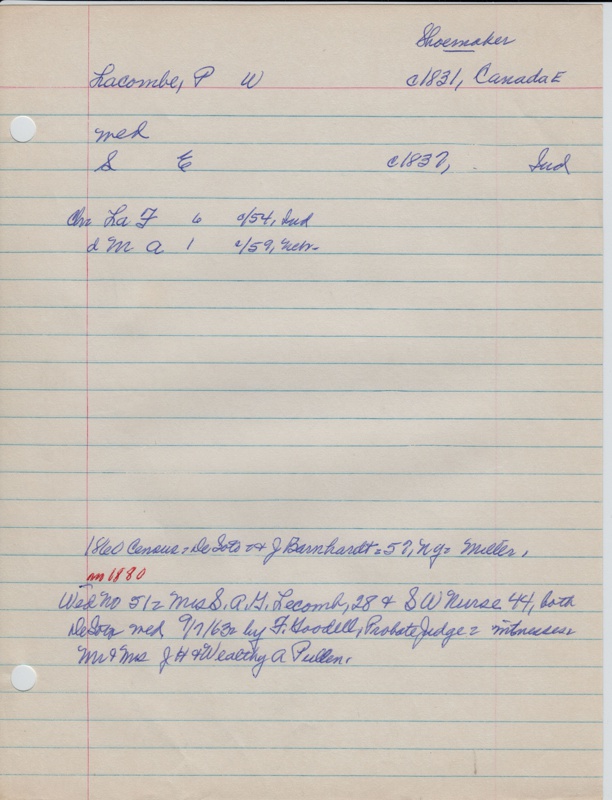 Shoemaker
Lacombe, P W c1831, Canada E
med
S E c1837, Ind
Chr La F 6 c/54, Ind
d M A 1 c/59, Nebr.
1860 Census = DeSoto = J Barnhardt = 57, N.Y. = Miller,
in 1880
Wed No 51 = Mrs S. A. G. Lecomb, 28 & S W Nurse 44, both
DeSoto med 9/7/63 = by F. Goodell, Probate Judge = witnesses =
Mr & Mrs J H & Wealthy A Pullen.